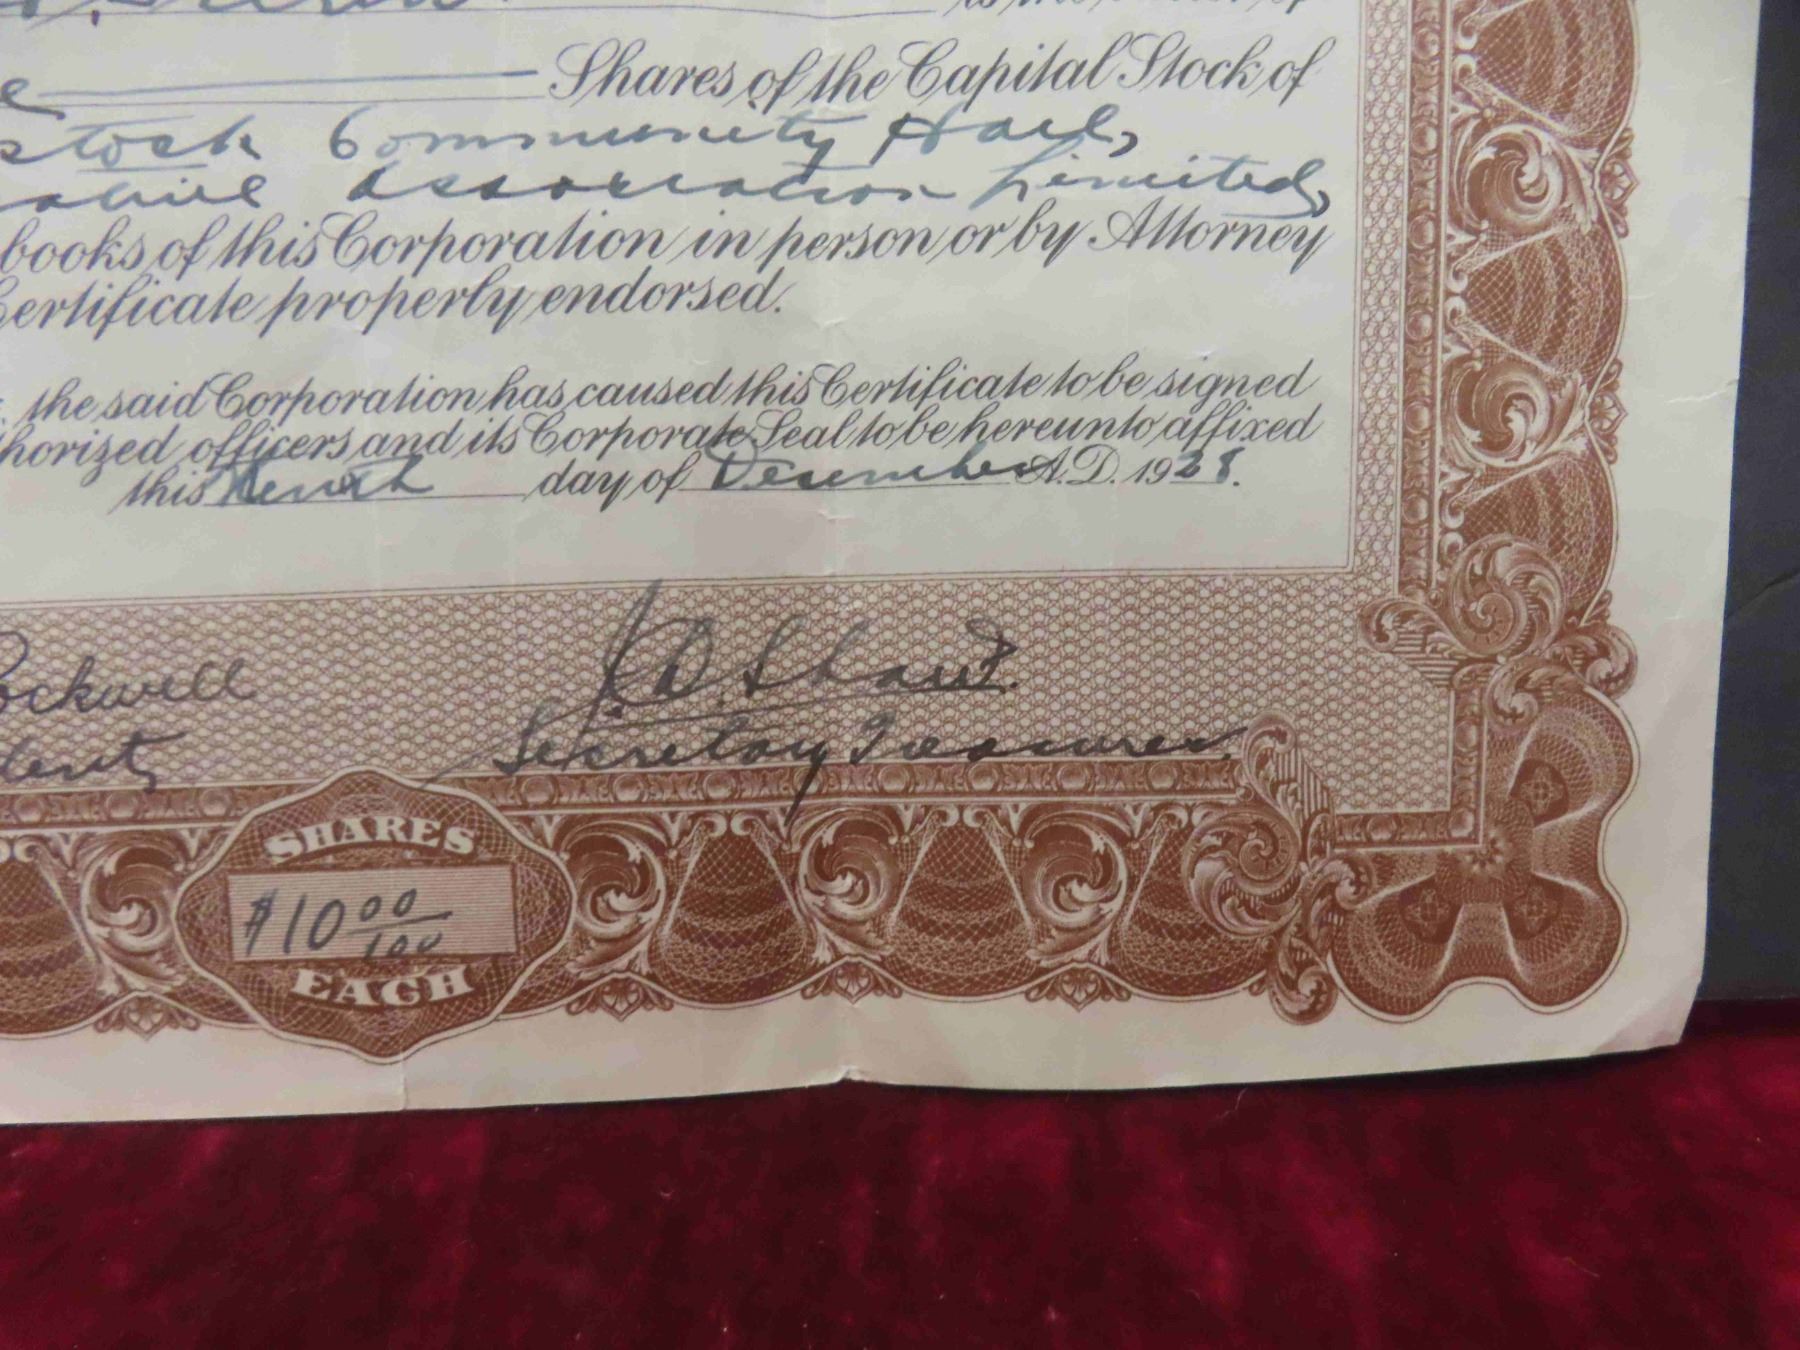 Shares of the Capital Stock of
stock Community Hall,
Association Limited,
books of this Corporation in person or by Attorney
Certificate properly endorsed.
the said Corporation has caused this Certificate to be signed
horized officers and its Corporate Seal to be hereunto affixed
this day of December A.D. 1928.
ockwell J. D. Shaw.
dent Secretary Treasurer.
SHARES
$10 00/100
EACH